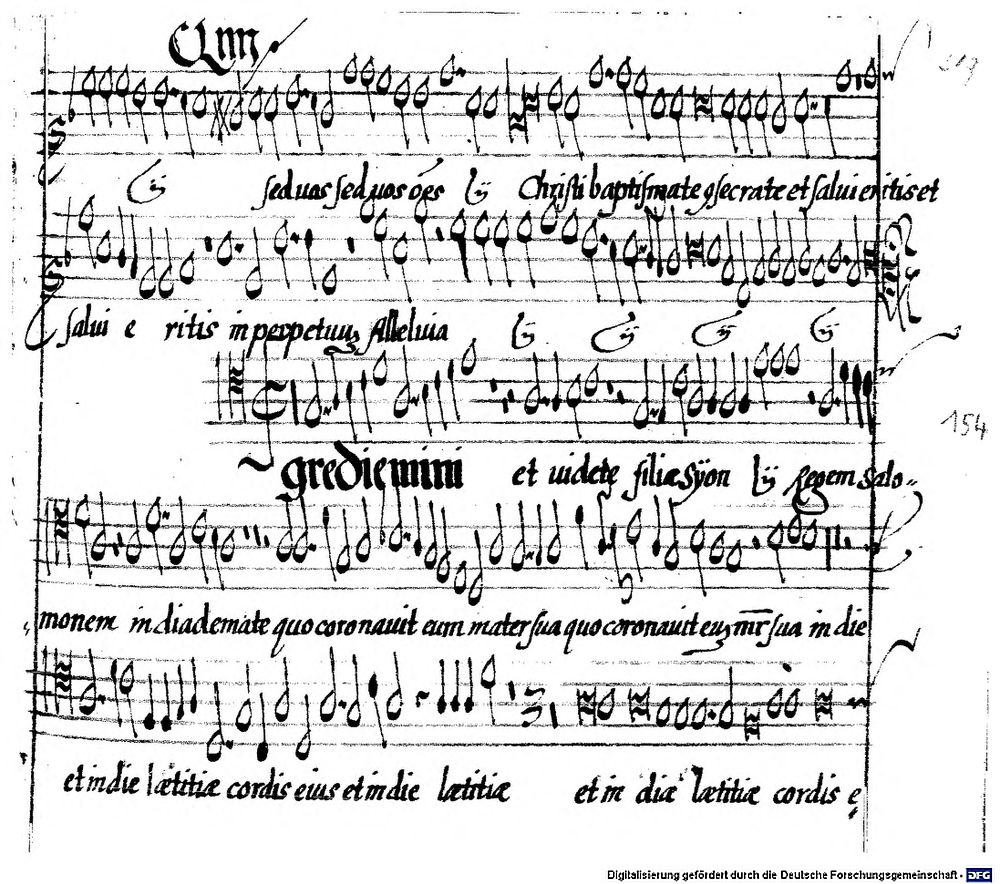 219
sed uos sed uos o͠es ij Christi baptismate ꝯsecrate et salui eritis et
salui e ritis in perpetuuʒ Alleluia ij ij ij ij
154
grediemini et uidete filiæ Sÿon ij Regem Salo-
monem in diademate quo coronauit eum mater sua quo coronauit euʒ mr̅ sua in die
et in die lætitiæ cordis eius et in die lætitiæ et in diæ lætitiæ cordis e
Digitalisierung gefördert durch die Deutsche Forschungsgemeinschaft - DFG